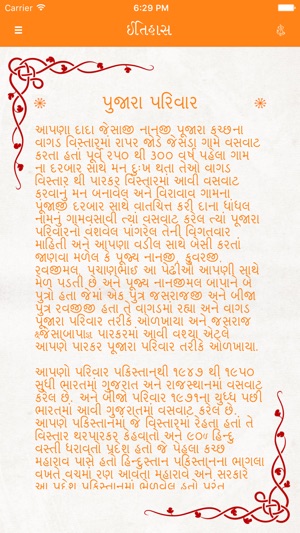 6:29 PM
ઈતિહાસ
પુજારા પરિવાર
આપણા દાદા જેસાજી નાનજી પૂજારા કચ્છના
વાગડ વિસ્તારમાં રાપર જોડે જેસડા ગામે વસવાટ
કરતા હતા પૂર્વે ૨૫૦ થી ૩૦૦ વર્ષ પહેલા ગામ
ના દરબાર સાથે મન દુઃખ થતા તેઓ વાગડ
વિસ્તાર થી પારકર વિસ્તારમાં આવી વસવાટ
કરવાનું મન બનાવેલ અને વિરાવાવ ગામના
પુજાજી દરબાર સાથે વાતચિત કરી દાના ધાંધલ
નામનું ગામવસાવી ત્યાં વસવાટ કરેલ ત્યાં પૂજારા
પરિવારનો વંશવેલ પાંગરેલ તેની વિગતવાર
માહિતી અને આપણા વડીલ સાથે બેસી કરતાં
જાણવા મળેલ કે પૂજ્ય નાનજી, કુવરજી,
રવજીમલ, પચાણભાઈ આ પેઢીઓ આપણી સાથે
મેળ પડતી છે અને પૂજ્ય નાનજીમલ બાપાને બે
પુત્રો હતા જેમાં એક પુત્ર જસરાજજી અને બીજા
પુત્ર રવજીજી હતા તે વાગડમાં રહ્યા અને વાગડ
પૂજારા પરિવાર તરીકે ઓળખાયા અને જસરાજ
પારકરમાં આવી વશ્યા એટલે
આપણે પારકર પૂજારા પરિવાર તરીકે ઓળખાયા.
આપણો પરિવાર પકિસ્તાનથી ૧૯૪૭ થી ૧૯૫૦
સુધી ભારતમાં ગુજરાત અને રાજસ્થાનમાં વસવાટ
કરેલ છે. અને બીજો પરિવાર ૧૯૭૧ના યુધ્ધ પછી
ભારતમાં આવી ગુજરાતમાં વસવાટ કરેલ છે.
આપણે પકિસ્તાનમાં જે વિસ્તારમાં રેહતા હતાં તે
વિસ્તાર થરપારકર કેહવાતો અને ૯૦% હિન્દુ
વસ્તી ધરાવતો પ્રદેશ હતો જે પેહલા કચ્છ
મહારાવ પાસે હતો હિન્દુસ્તાન પકિસ્તાનના ભાગલા
વખતે વચમાં રણ આવતા મહારાવે અને સરકારે
આ પ્રદેશ પકિસ્તાનમાં ભેળવેલ હતો પરંતુ